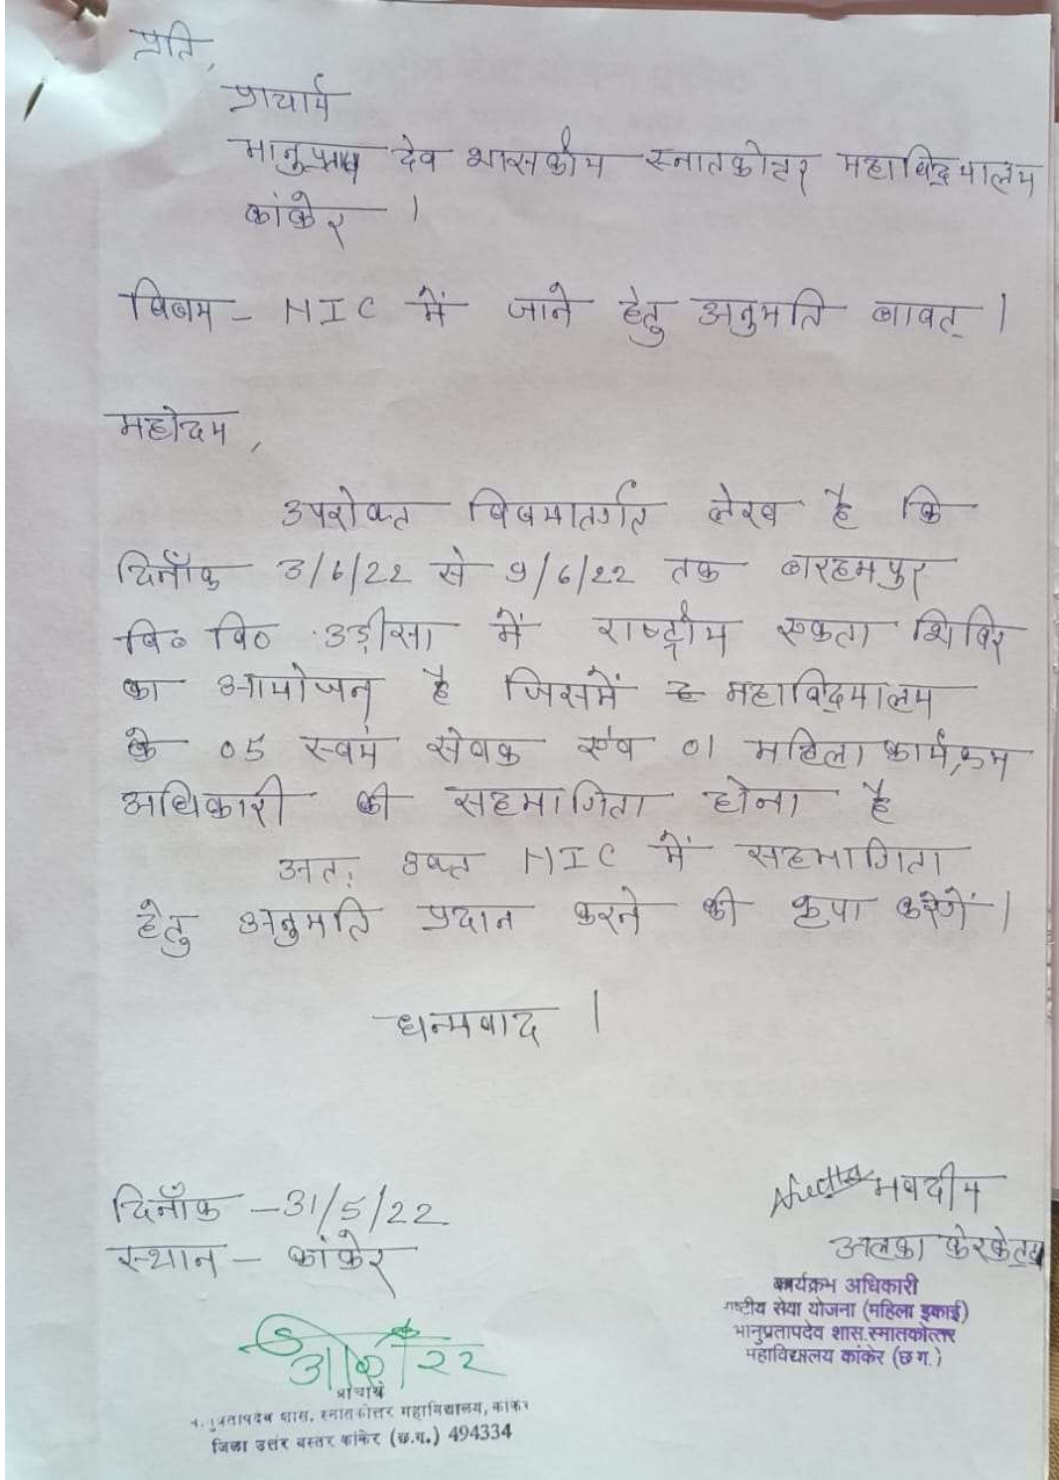 प्रति,
प्राचार्य
भानुप्रताप देव शासकीय स्नातकोत्तर महाविद्यालय
कांकेर ।
विषय - NIC में जाने हेतु अनुमति बाबत् ।
महोदय,
उपरोक्त विषयातर्गत लेख है कि
दिनाँक 3/6/22 से 9/6/22 तक बारहमपुर
वि० वि० उड़ीसा में राष्ट्रीय एकता शिविर
का आयोजन है जिसमें महाविद्यालय
के 05 स्वयं सेवक एंव 01 महिला कार्यक्रम
अधिकारी की सहभागिता होना है
अतः उक्त NIC में सहभागिता
हेतु अनुमति प्रदान करने की कृपा करेगें ।
धन्यवाद ।
दिनाँक - 31/5/22
स्थान - कांकेर
भवदीय
अलका केरकेट्टा
कार्यक्रम अधिकारी
राष्टीय सेवा योजना (महिला इकाई)
भानुप्रतापदेव शास.स्नातकोत्तर
महाविद्यालय कांकेर (छ.ग.)
प्राचार्य
शास. स्नातकोत्तर महाविद्यालय, कांकेर
जिला उत्तर बस्तर कांकेर (छ.ग.) 494334